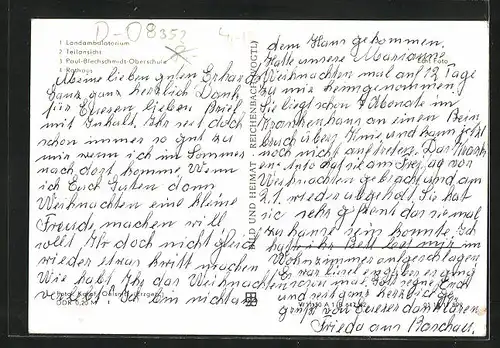 D-08352
1 Landambulatorium
2 Teilansicht
3 Paul-Blechschmidt-Oberschule
4 Rathaus
Meine lieben guten Erhards
Ganz ganz herzlich Dank
für Eueren lieben Brief
mit Inhalt. Ihr seid doch
schon immer so gut zu
mir wenn ich im Sommer
nach dort komme. Wenn
ich Euch Guten dann
Weihnachten eine kleine
Freude machen will
sollt Ihr doch nicht gleich
wieder etwas kritt machen
Wie habt Ihr das Weihnachten
verlebt
BILD UND HEIMAT REICHENBACH (VOGTL)
Echt Foto
dem Haus gekommen.
Hatte unsere Marianne
Weihnachten mal auf 12 Tage
zu mir heimgenommen
Sie liegt schon 7 Monate im
Krankenhaus an einen Bein
bruch überm Knie und kann jetzt
noch nicht auftreten. Das Krank
en Auto hat sie am Freitag vor
Weihnachten gebracht und am
2.1. wieder abgeholt. Sie hat
sich sehr gefreut das sie mal
zu hause sein konnte. Ich
hatte ihr Bett bei mir im
Wohnzimmer aufgeschlagen
Es war viel
und ganz herzliche
grüßt von Eueren dankbaren
Frieda aus Raschau.